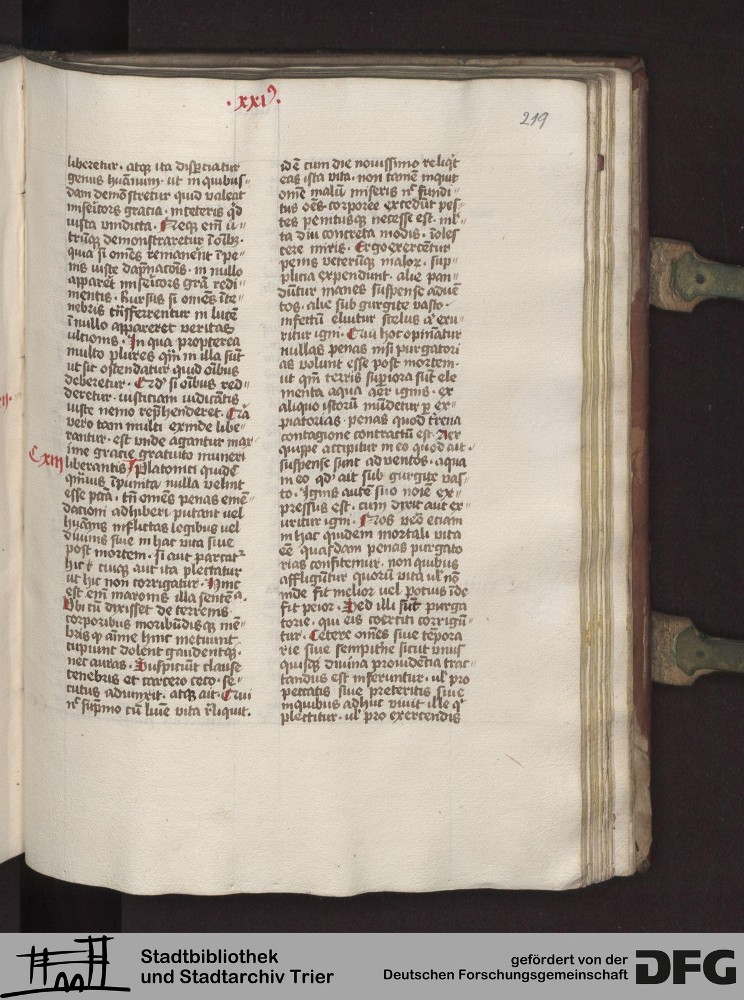 .xxi⁹.
219
liberetur . atq; ita dispᵉciatur
genus huānum . ut in quibus=
dam demōstretur quid valeat
misericors gracia . in ceteris qd̓
iusta vindicta . Neq; em̄ u=
trūq; demonstraretur ī oīb;
quia si om̄es remaneret ī pe=
nis iuste dāpnacōis . in nullo
apparet misericors grā redi=
mentis . Rursus si om̄es ī te=
nebris trīsferrentur in lucē
ī nullo appareret veritas
ultionis . In qua propterea
multo plures qm̄ in illa sūt
ut sic ostendatur quid oībus
deberetur . Qd̓ si oībus red=
deretur . iusticiam iudicātis
iuste nemo repͪhenderet . Qā
vero tam multi exinde libe=
rantur . est vnde agantur max=
ime gracie gratuito muneri
Cxiii liberantis Platonici quidē
qm̄uis īpunita nulla velint
esse pctā . tn̄ om̄es penas emē=
dacioni adhiberi putant vel
huānis inflictas legibus vel
diuinis siue in hac vita siue
post mortem . si aut parcat²
hic t̄ cuiq; aut ita plectatur
ut hic non corrigatur . Hinc
est em̄ maronis illa sentēᵃ .
Vbi cū dixisset de terrenis
corporibus moribūdisq; mē=
bris q̄ aīme hinc metuunt
cupiunt dolent gaudentq;
nec auras . Suspiciūt clause
tenebris et carcero ceco . se=
cutus adiunxit . atq; ait . Qui
nͬ sup̄mo cū luīe vita r̄liquit .
idē cum die nouissimo reliqͥt
eas ista vita . non tamē inquit
om̄e malū miseris nͬ fundi=
tus oēs corporee excedūt pes=
tes penitusq; necesse est . ml̓=
ta diu concreta modis . īoles
cere miris . Ergo exercētur
penis veterūq; malor̄ . sup=
plicia expendunt . alie pan=
dūtur inanes suspense aduē
tos . alie sub gurgite vasto .
infectū eluitur scelus aͭ exu=
ritur igni . Qui hoc opinātur
nullas penas nisi purgatori
as volunt esse post mortem .
ut qm̄ terris supiora sūt ele
menta aqua aer ignis . ex
aliquo istorū mūdetur p ex=
piatorias . penas quod t̓rena
contagione contractū est . Aer
quippe accipitur in eo quod ait .
suspense sunt ad ventos . aqua
in eo qd̓ ait sub gurgite vas=
to . Ignis autē suo noīe ex=
pressus est . cum dixit aut ex=
uritur igni . Nos vͦo etiam
in hac quidem mortali vita
eē quasdam penas purgato
rias confitemur . non quibus
affliguntur quorū vita ul̓ nō
inde fit melior vel potius īde
fit peior . Sed illi sūt purga
torie . qui eis coerciti corrigū=
tur . Cetere om̄es siue tēpora
rie siue sempit̓ne sicut vnus
quisq; diuina prouidēcia trac=
tandus est inferuntur . ul̓ pro
peccatis siue preteritis siue
in quibus adhuc viuit ille qͥ
plectitur . ul̓ pro exercendis
Stadtbibliothek
und Stadtarchiv Trier
gefördert von der
Deutschen Forschungsgemeinschaft
DFG